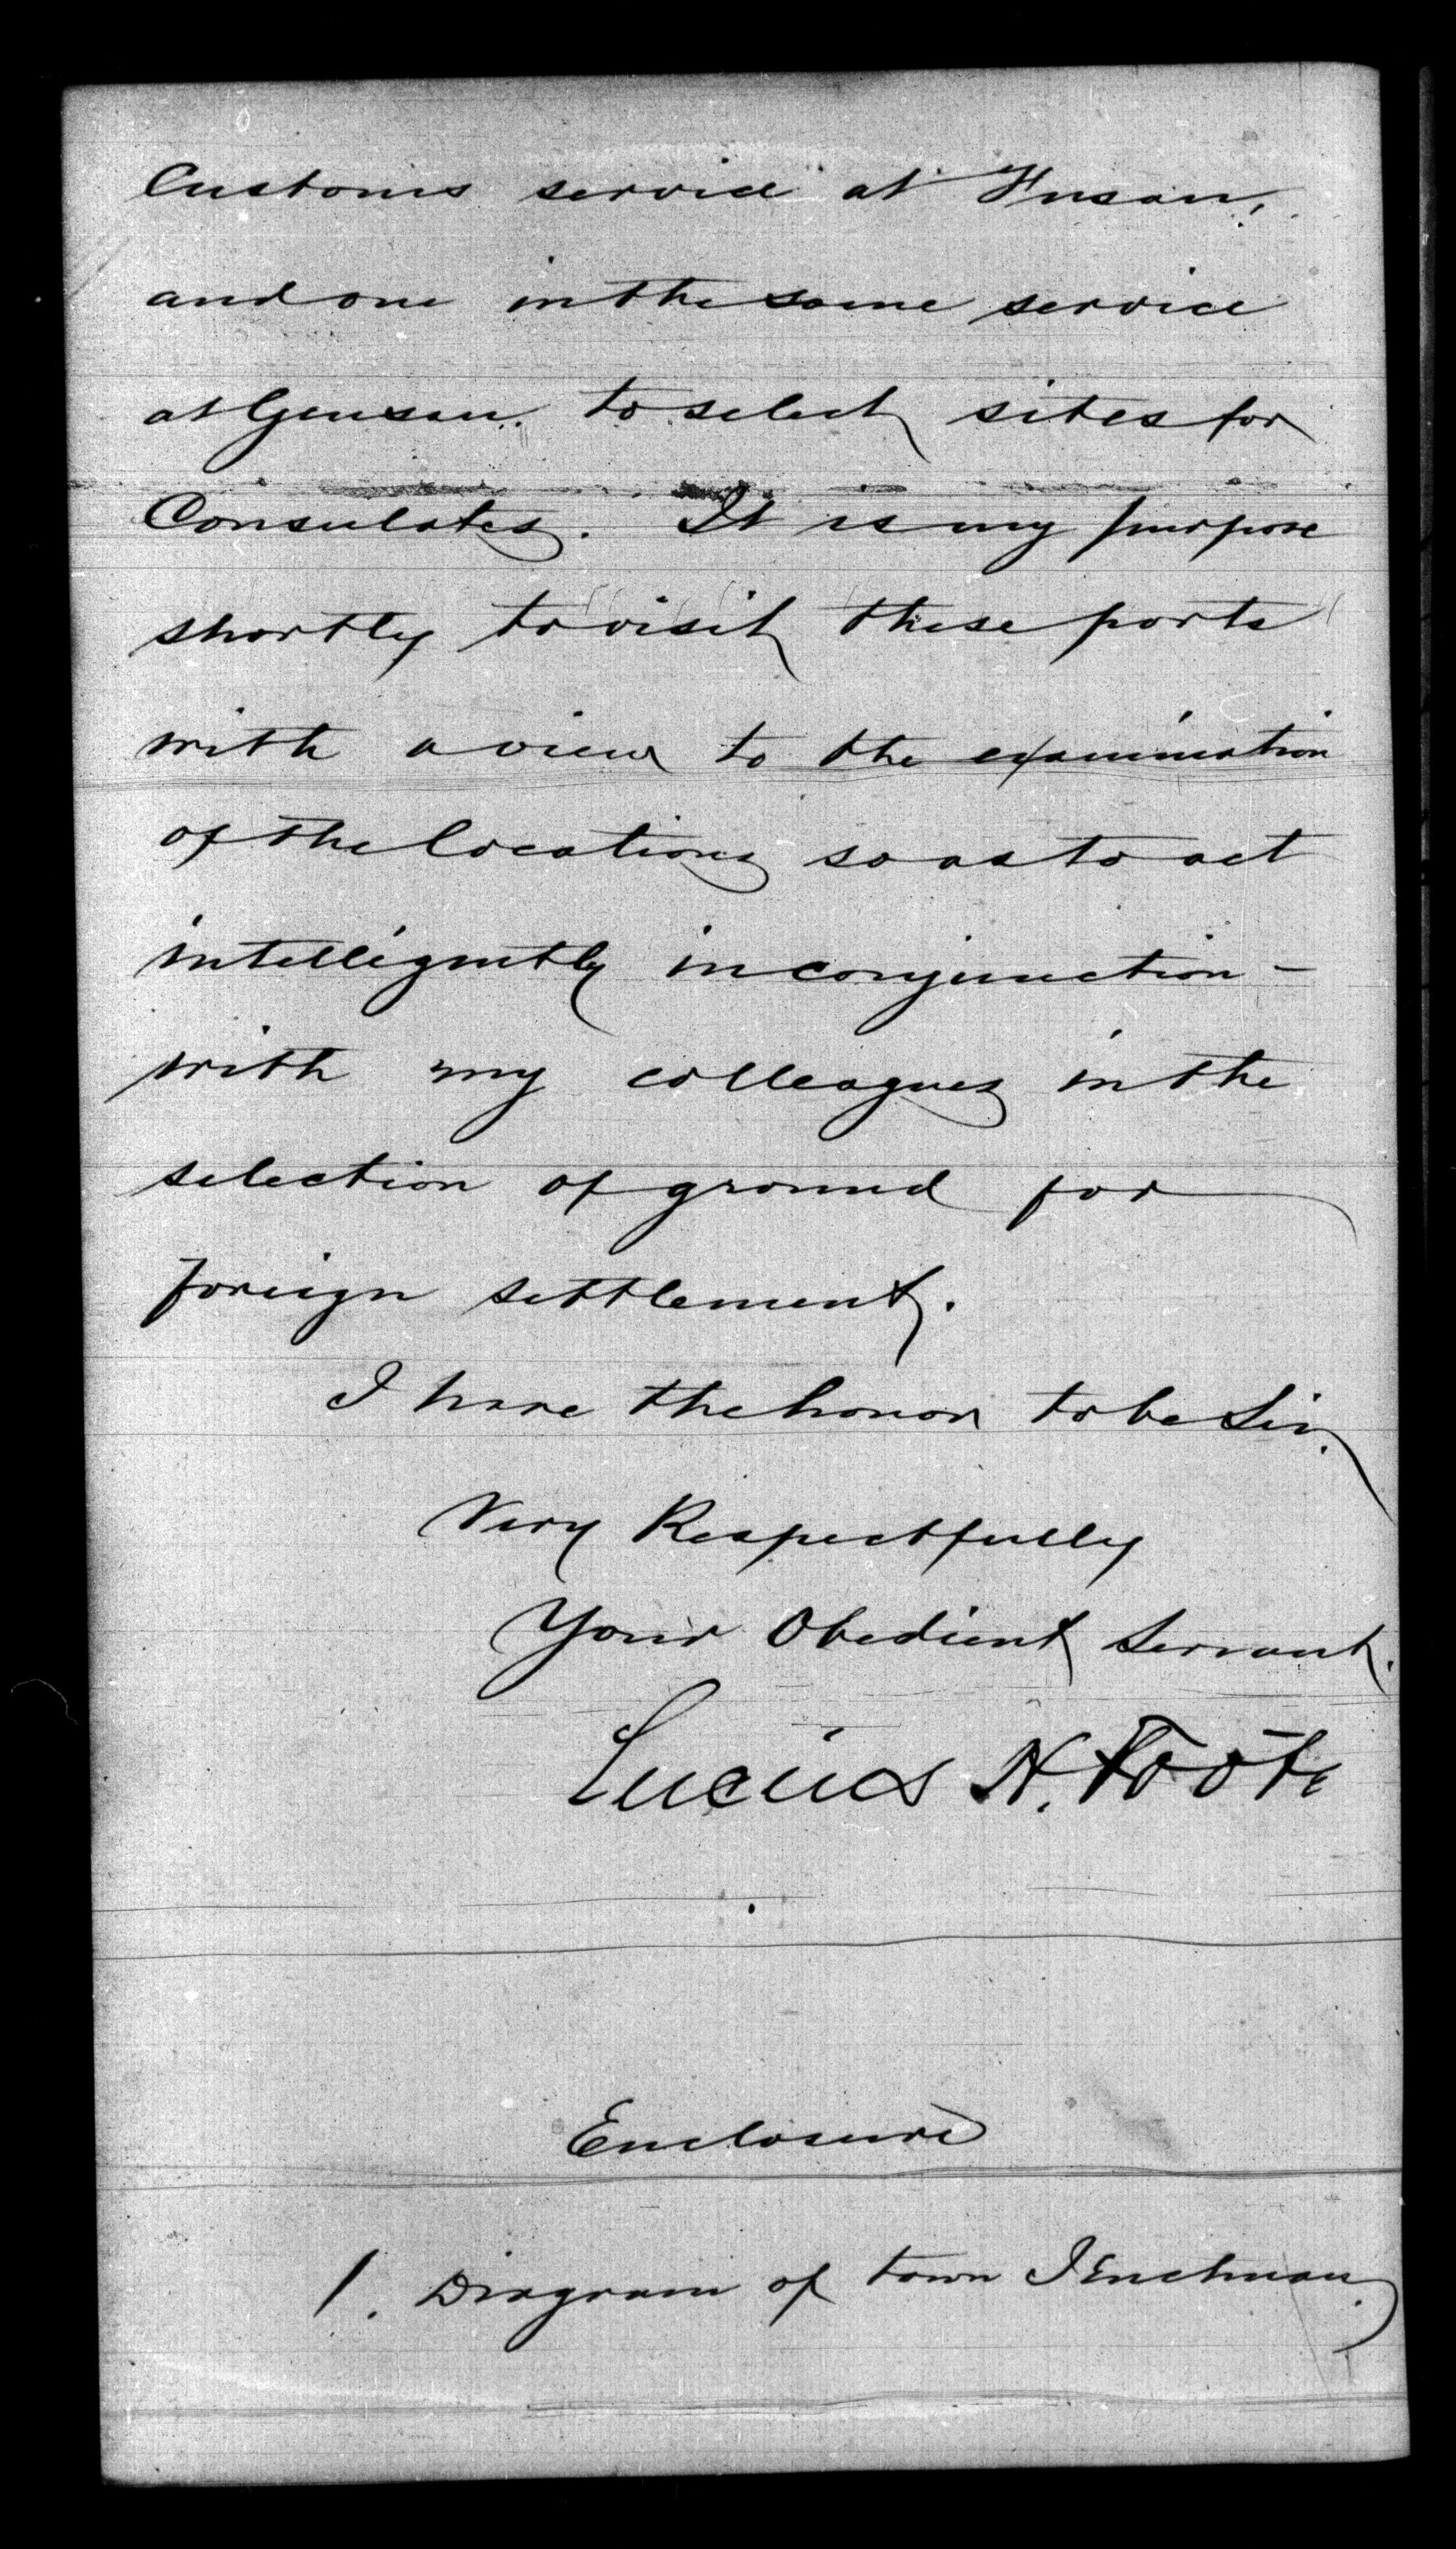 Customs service at Fusan,
and one in the same service
at Gensan. to select sites for
Consulates. It is my purpose
shortly to visit these ports
with a view to the examination
of the locations so as to act
intelligently in conjunction -
with my colleagues in the
selection of ground for
foreign settlement.
I have the honor to be Sir.
Very Respectfully
Your Obedient Servant.
Lucius H. Foote
Enclosure
1. Diagram of town Jenchuan.